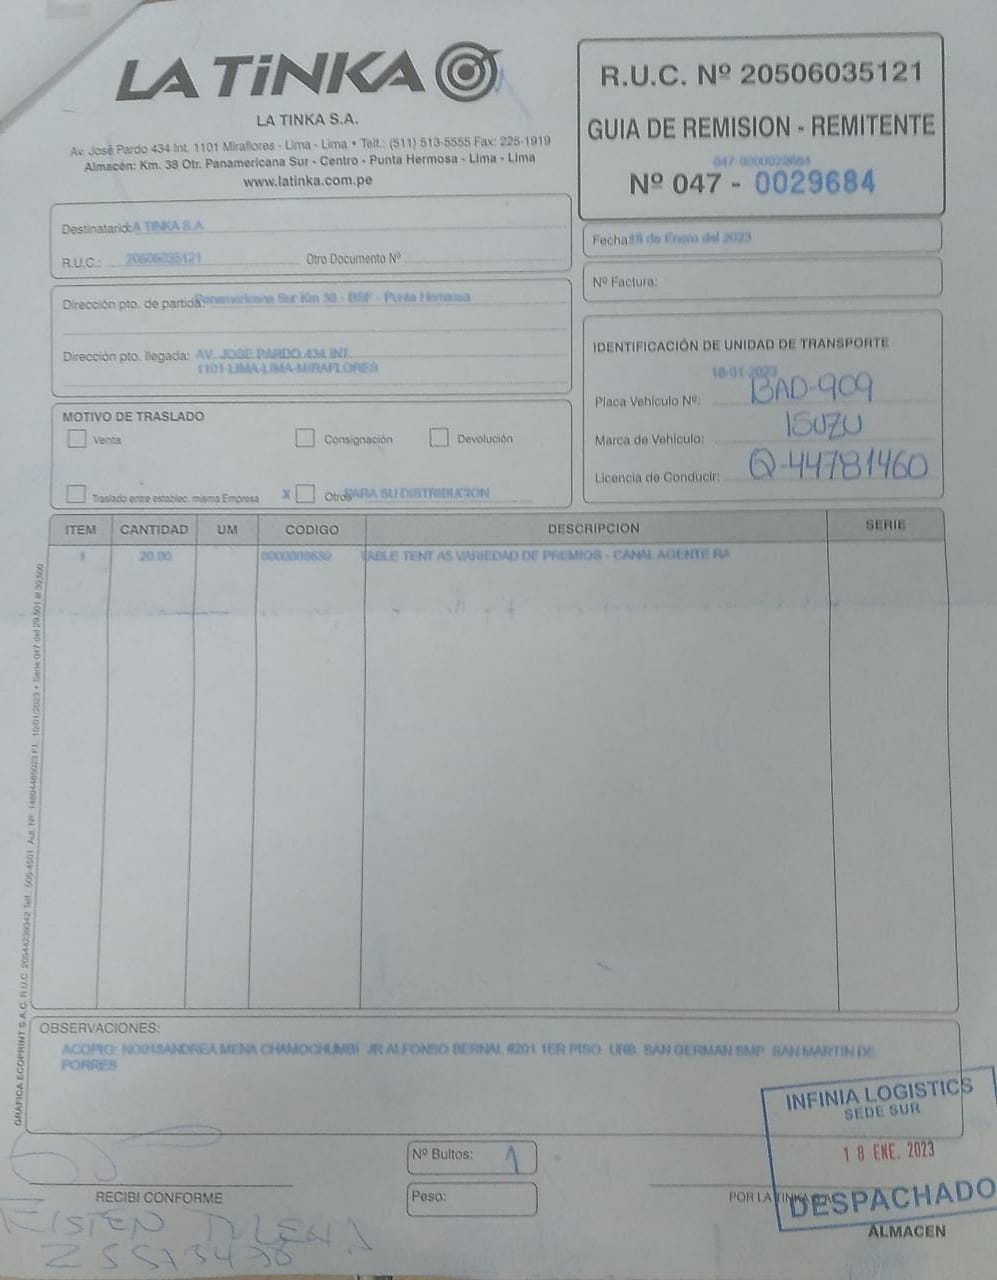 LA TiNKA
LA TINKA S.A.
Av. José Pardo 434 Int. 1101 Miraflores - Lima - Lima • Telf.: (511) 513-5555 Fax: 225-1919
Almacén: Km. 38 Otr. Panamericana Sur - Centro - Punta Hermosa - Lima - Lima
www.latinka.com.pe
R.U.C. Nº 20506035121
GUIA DE REMISION - REMITENTE
047-0000029684
Nº 047 - 0029684
Destinatario: LA TINKA S.A.
R.U.C.: 20506035121 Otro Documento Nº
Fecha: 18 de Enero del 2023
Nº Factura:
Dirección pto. de partida: Panamericana Sur Km 38 - BSF - Punta Hermosa
Dirección pto. llegada: AV. JOSE PARDO 434 INT.
1101-LIMA-LIMA-MIRAFLORES
IDENTIFICACIÓN DE UNIDAD DE TRANSPORTE
18-01-2023
Placa Vehículo Nº: BAD-909
Marca de Vehículo: ISUZU
Licencia de Conducir: Q-44781460
MOTIVO DE TRASLADO
Venta Consignación Devolución
Traslado entre establec. misma Empresa X Otros PARA SU DISTRIBUCION
ITEM CANTIDAD UM CODIGO DESCRIPCION SERIE
1 20.00 TABLE TENT A5 VARIEDAD DE PREMIOS - CANAL AGENTE RA
GRAFICA ECOPRINT S.A.C. R.U.C. 20544239342 Telf.: 505-4501 Aut. Nº: 14894485023 F.I. 10/01/2023 • Serie 047 del 29,501 al 30,500
OBSERVACIONES:
ACOPIO: NO013ANDREA MENA CHAMOCHUMBI JR ALFONSO BERNAL #201 1ER PISO URB. SAN GERMAN SMP SAN MARTIN DE
PORRES
INFINIA LOGISTICS
SEDE SUR
18 ENE. 2023
DESPACHADO
ALMACEN
Nº Bultos: 1
Peso:
RECIBI CONFORME
POR LA TINKA S.A.